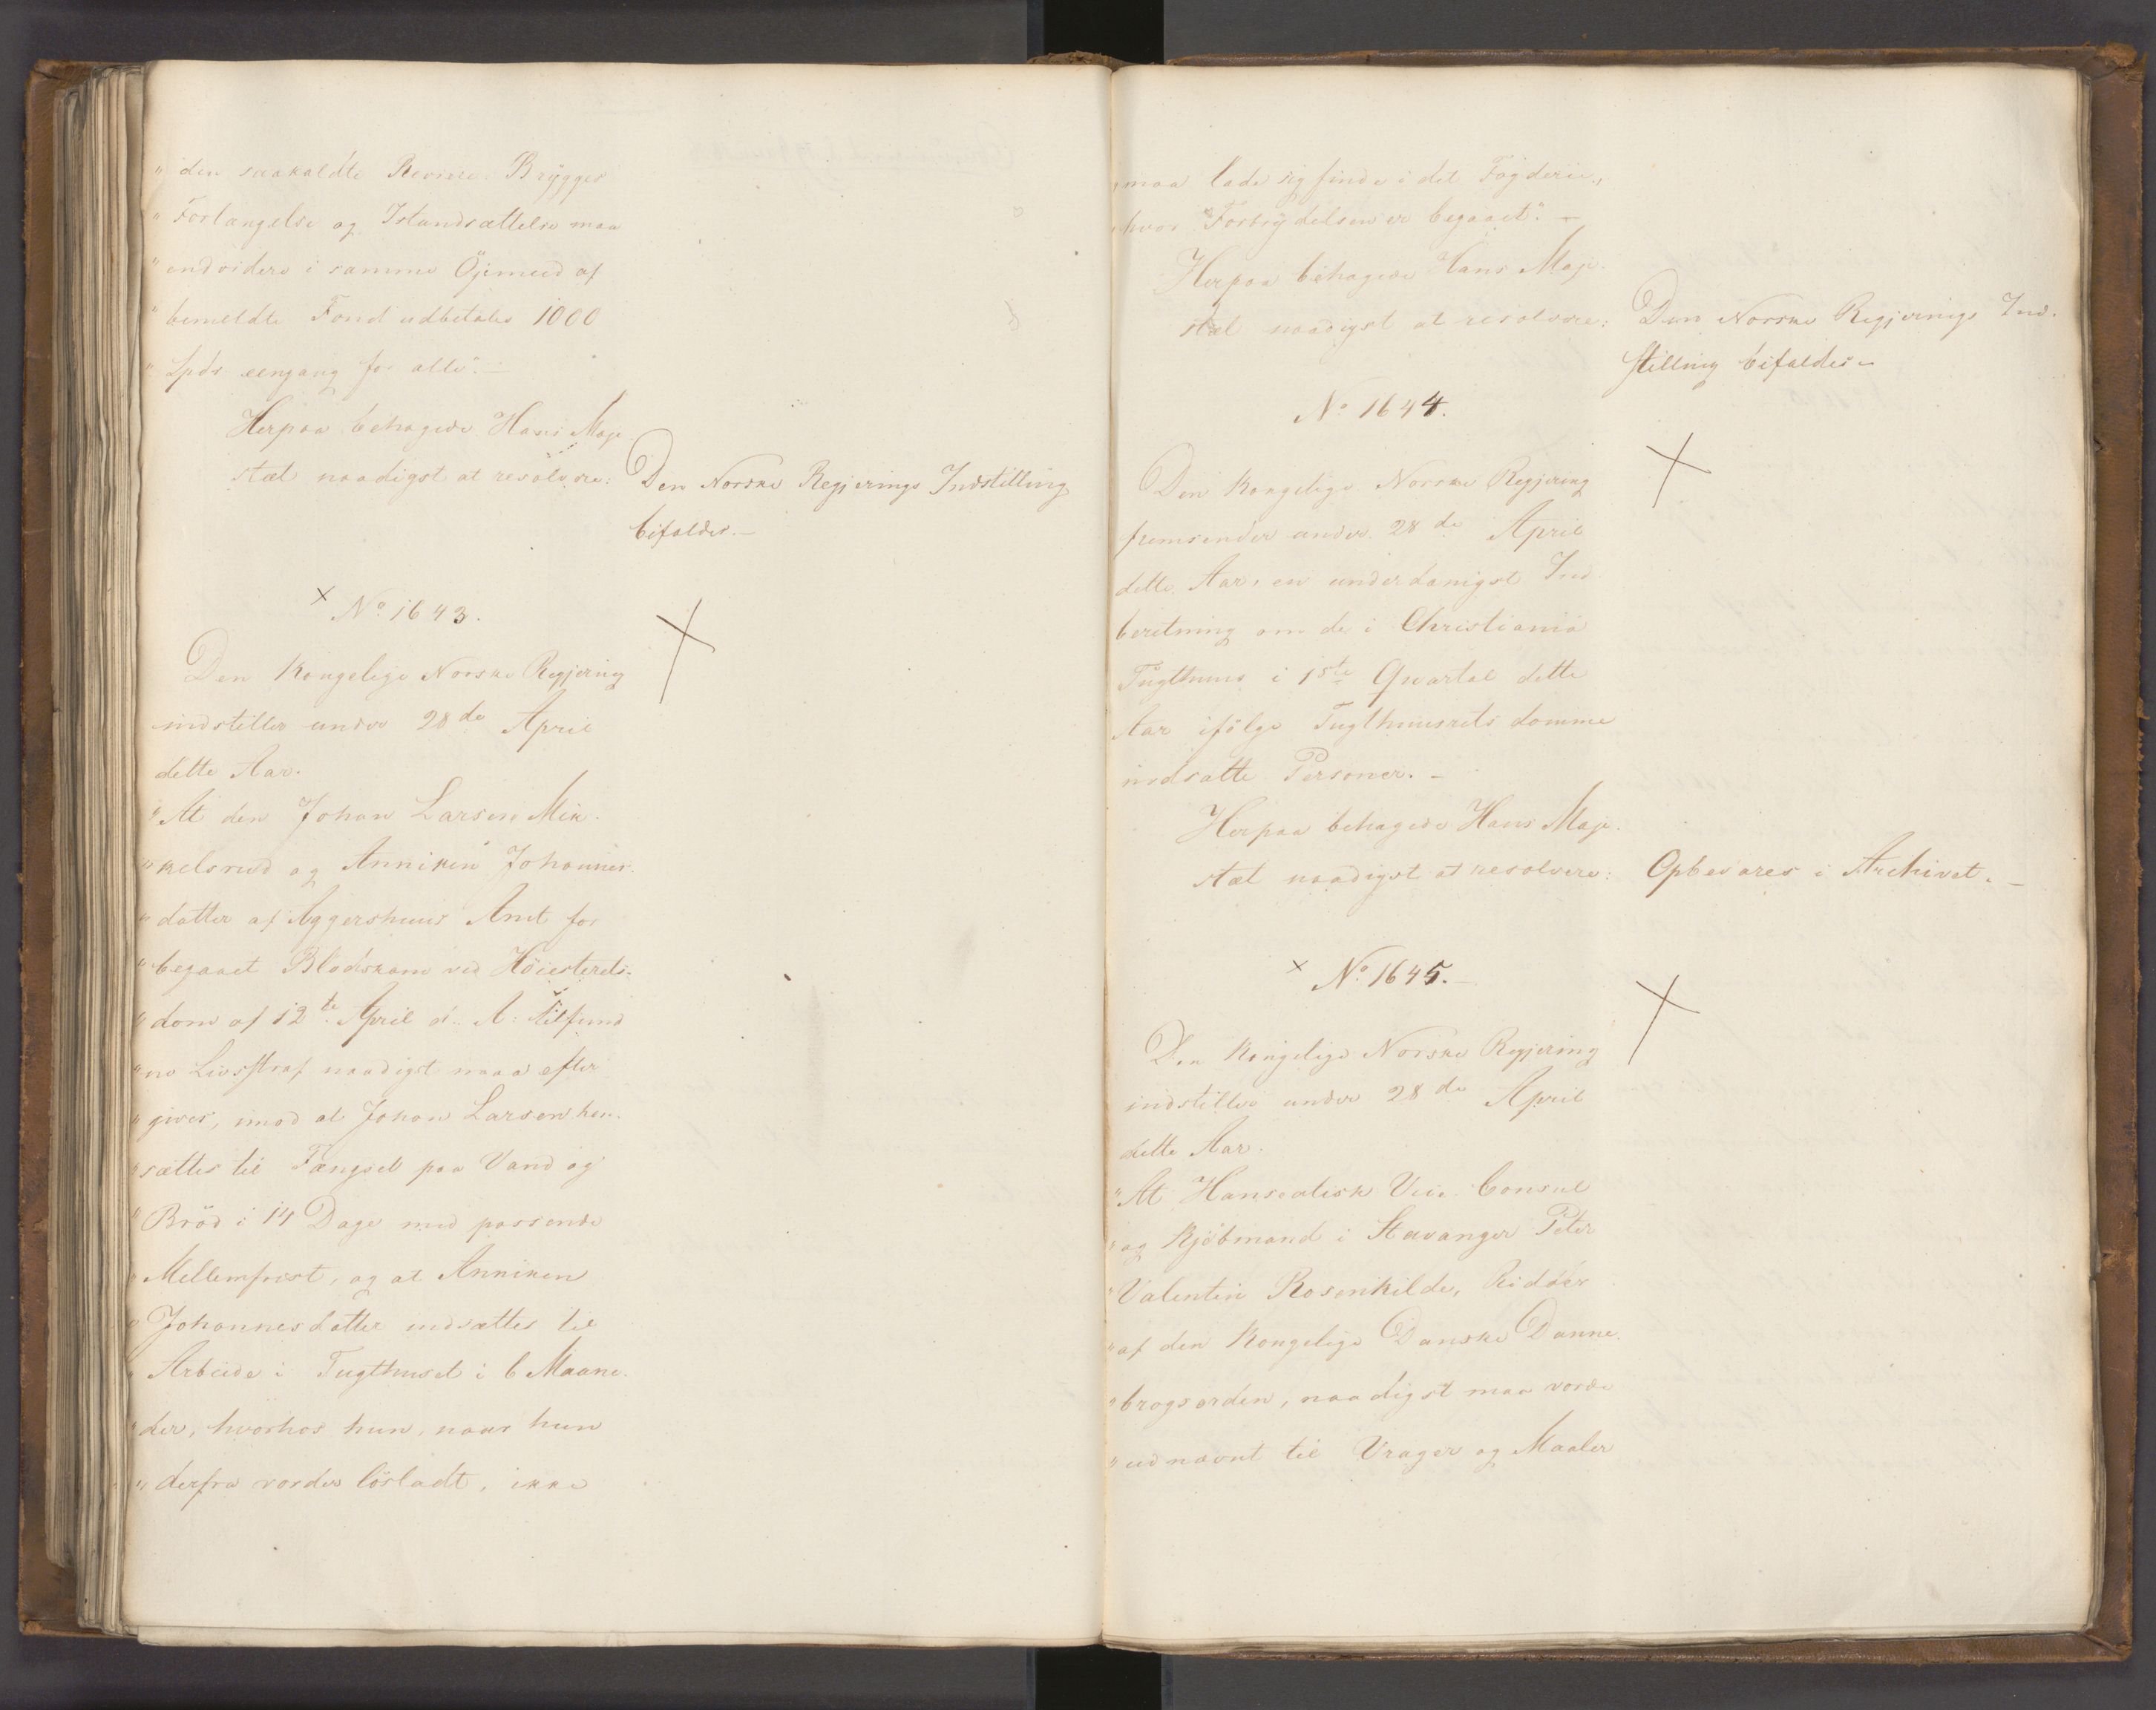 " den saakaldte Reviere Brygges
" Forlængelse og Istandsættelse maa
" endvidere i samme Öjemeed af
" bemeldte Fond udbetales 1000
" Spdr eengang for alle". -
Herpaa behagede Hans Maje
stæt naadigst at resolvere: Den Norske Regjerings Indstilling
bifaldes. -
× No 1643.
Den Kongelige Norske Regjering
indstiller under 28de April
dette Aar.
" At den Johan Larsen Mik-
" kelsrud og Anniken Johannes-
" datter af Aggershuus Amt for
" begaaet Blodskam ved Höiesterets-
" dom af 12te April d. A: tilfund
" ne Livsstraf naadigst maa efter
" gives, imod at Johan Larsen hen-
" sættes til Fængsel paa Vand og
" Bröd i 14 Dage med passende
" Mellemfrist, og at Anniken
" Johannesdatter indsættes til
" Arbeide i Tugthuset i 6 Maane-
" der, hvorhos hun, naar hun
" derfra vorder lösladt, ikke
" maa lade sig finde i det Fogderie,
" hvor Forbrydelsen er begaaet". -
Herpaa behagede Hans Maje-
stæt naadigst at resolvere: Den Norske Regjerings Ind-
stilling bifaldes -
No 1644.
Den Kongelige Norske Regjering
fremsender under 28de April
dette Aar, en underdanigst Ind
beretning om de i Christiania
Tugthuus i 1ste Qvartal dette
Aar ifölge Tugthuusrets domme
indsatte Personer. -
Herpaa behagede Hans Maje-
stæt naadigst at resolvere: Opbevares i Archivet. -
× No 1645. -
Den Kongelige Norske Regjering
indstiller under 28de April
dette Aar.
" At Hanseatisk Vice Consul
" og Kjöbmand i Stavanger Peter
" Valentin Rosenkilde, Ridder
" af den Kongelige Danske Danne-
" brogsorden, naadigst maa vorde
" udnævnt til Vrager og Maaler